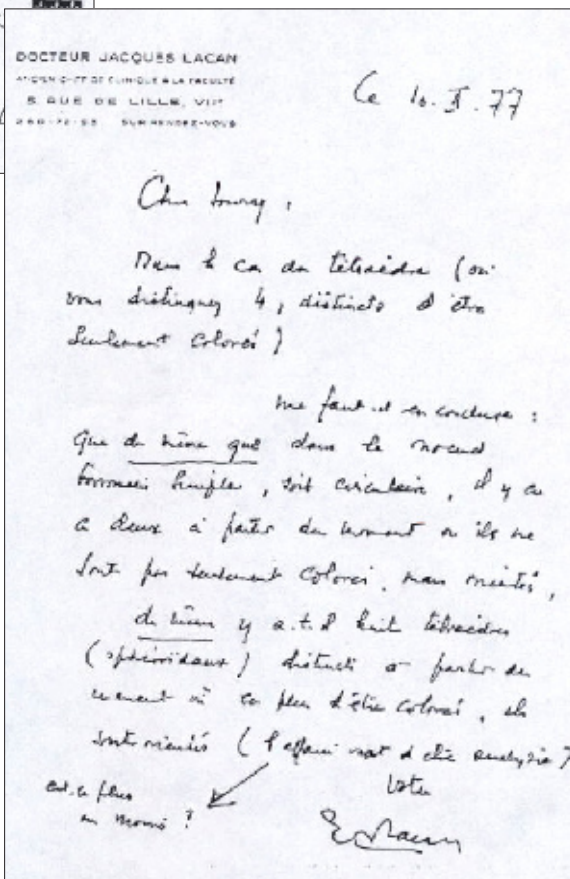 DOCTEUR JACQUES LACAN
ANCIEN CHEF DE CLINIQUE A LA FACULTÉ
5 RUE DE LILLE, VIIe
260-72-93 SUR RENDEZ-VOUS
Ce 10. X. 77
Cher Soury,
Dans le cas du tétraèdre (où
vous distinguez 4, distincts d'être
seulement colorés)
me faut-il en conclure :
Que de même que dans le noeud
borroméen simple, soit circulaire, il y en
a deux à partir du moment où ils ne
sont pas seulement colorés, mais orientés,
de même y a-t-il huit tétraèdres
(sphéroïdaux) distincts à partir du
moment où en plus d'être colorés, ils
sont orientés (l'affaire vaut d'être analysée)
est-ce plus
ou moins ?
Votre
J. Lacan